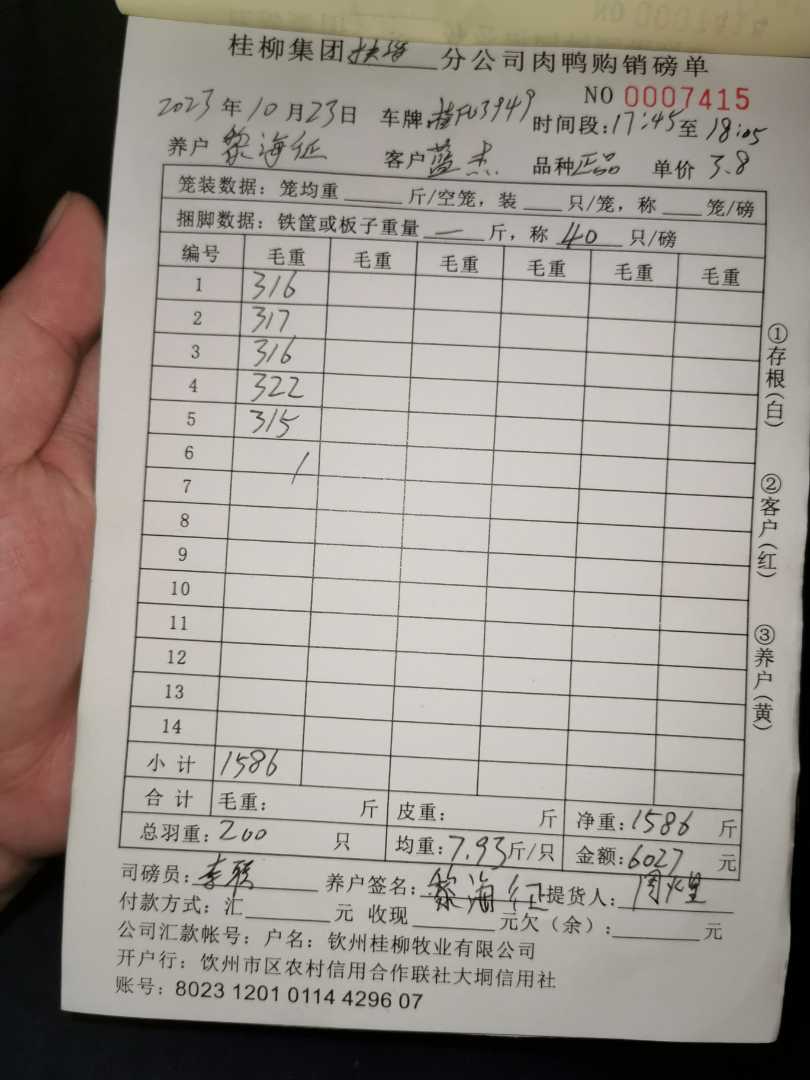 桂柳集团扶绥分公司肉鸭购销磅单
NO 0007415
2023年10月23日 车牌桂FU3949 时间段:17:45至18:05
养户 黎海征 客户蓝杰 品种正品 单价 3.8
笼装数据：笼均重____斤/空笼，装___只/笼，称___笼/磅
捆脚数据：铁筐或板子重量 — 斤，称 40 只/磅
编号 毛重 毛重 毛重 毛重 毛重 毛重
1 316
2 317
3 316
4 322
5 315
6 /
7
8
9
10
11
12
13
14
小计 1586
合计 毛重： 斤 皮重： 斤 净重：1586 斤
总羽重：200 只 均重：7.93斤/只 金额：6027元
司磅员： 养户签名：黎海征 提货人：周
付款方式：汇______元 收现______元欠（余）：______元
公司汇款帐号：户名：钦州桂柳牧业有限公司
开户行：钦州市区农村信用合作联社大垌信用社
账号：8023 1201 0114 4296 07
①存根（白）
②客户（红）
③养户（黄）